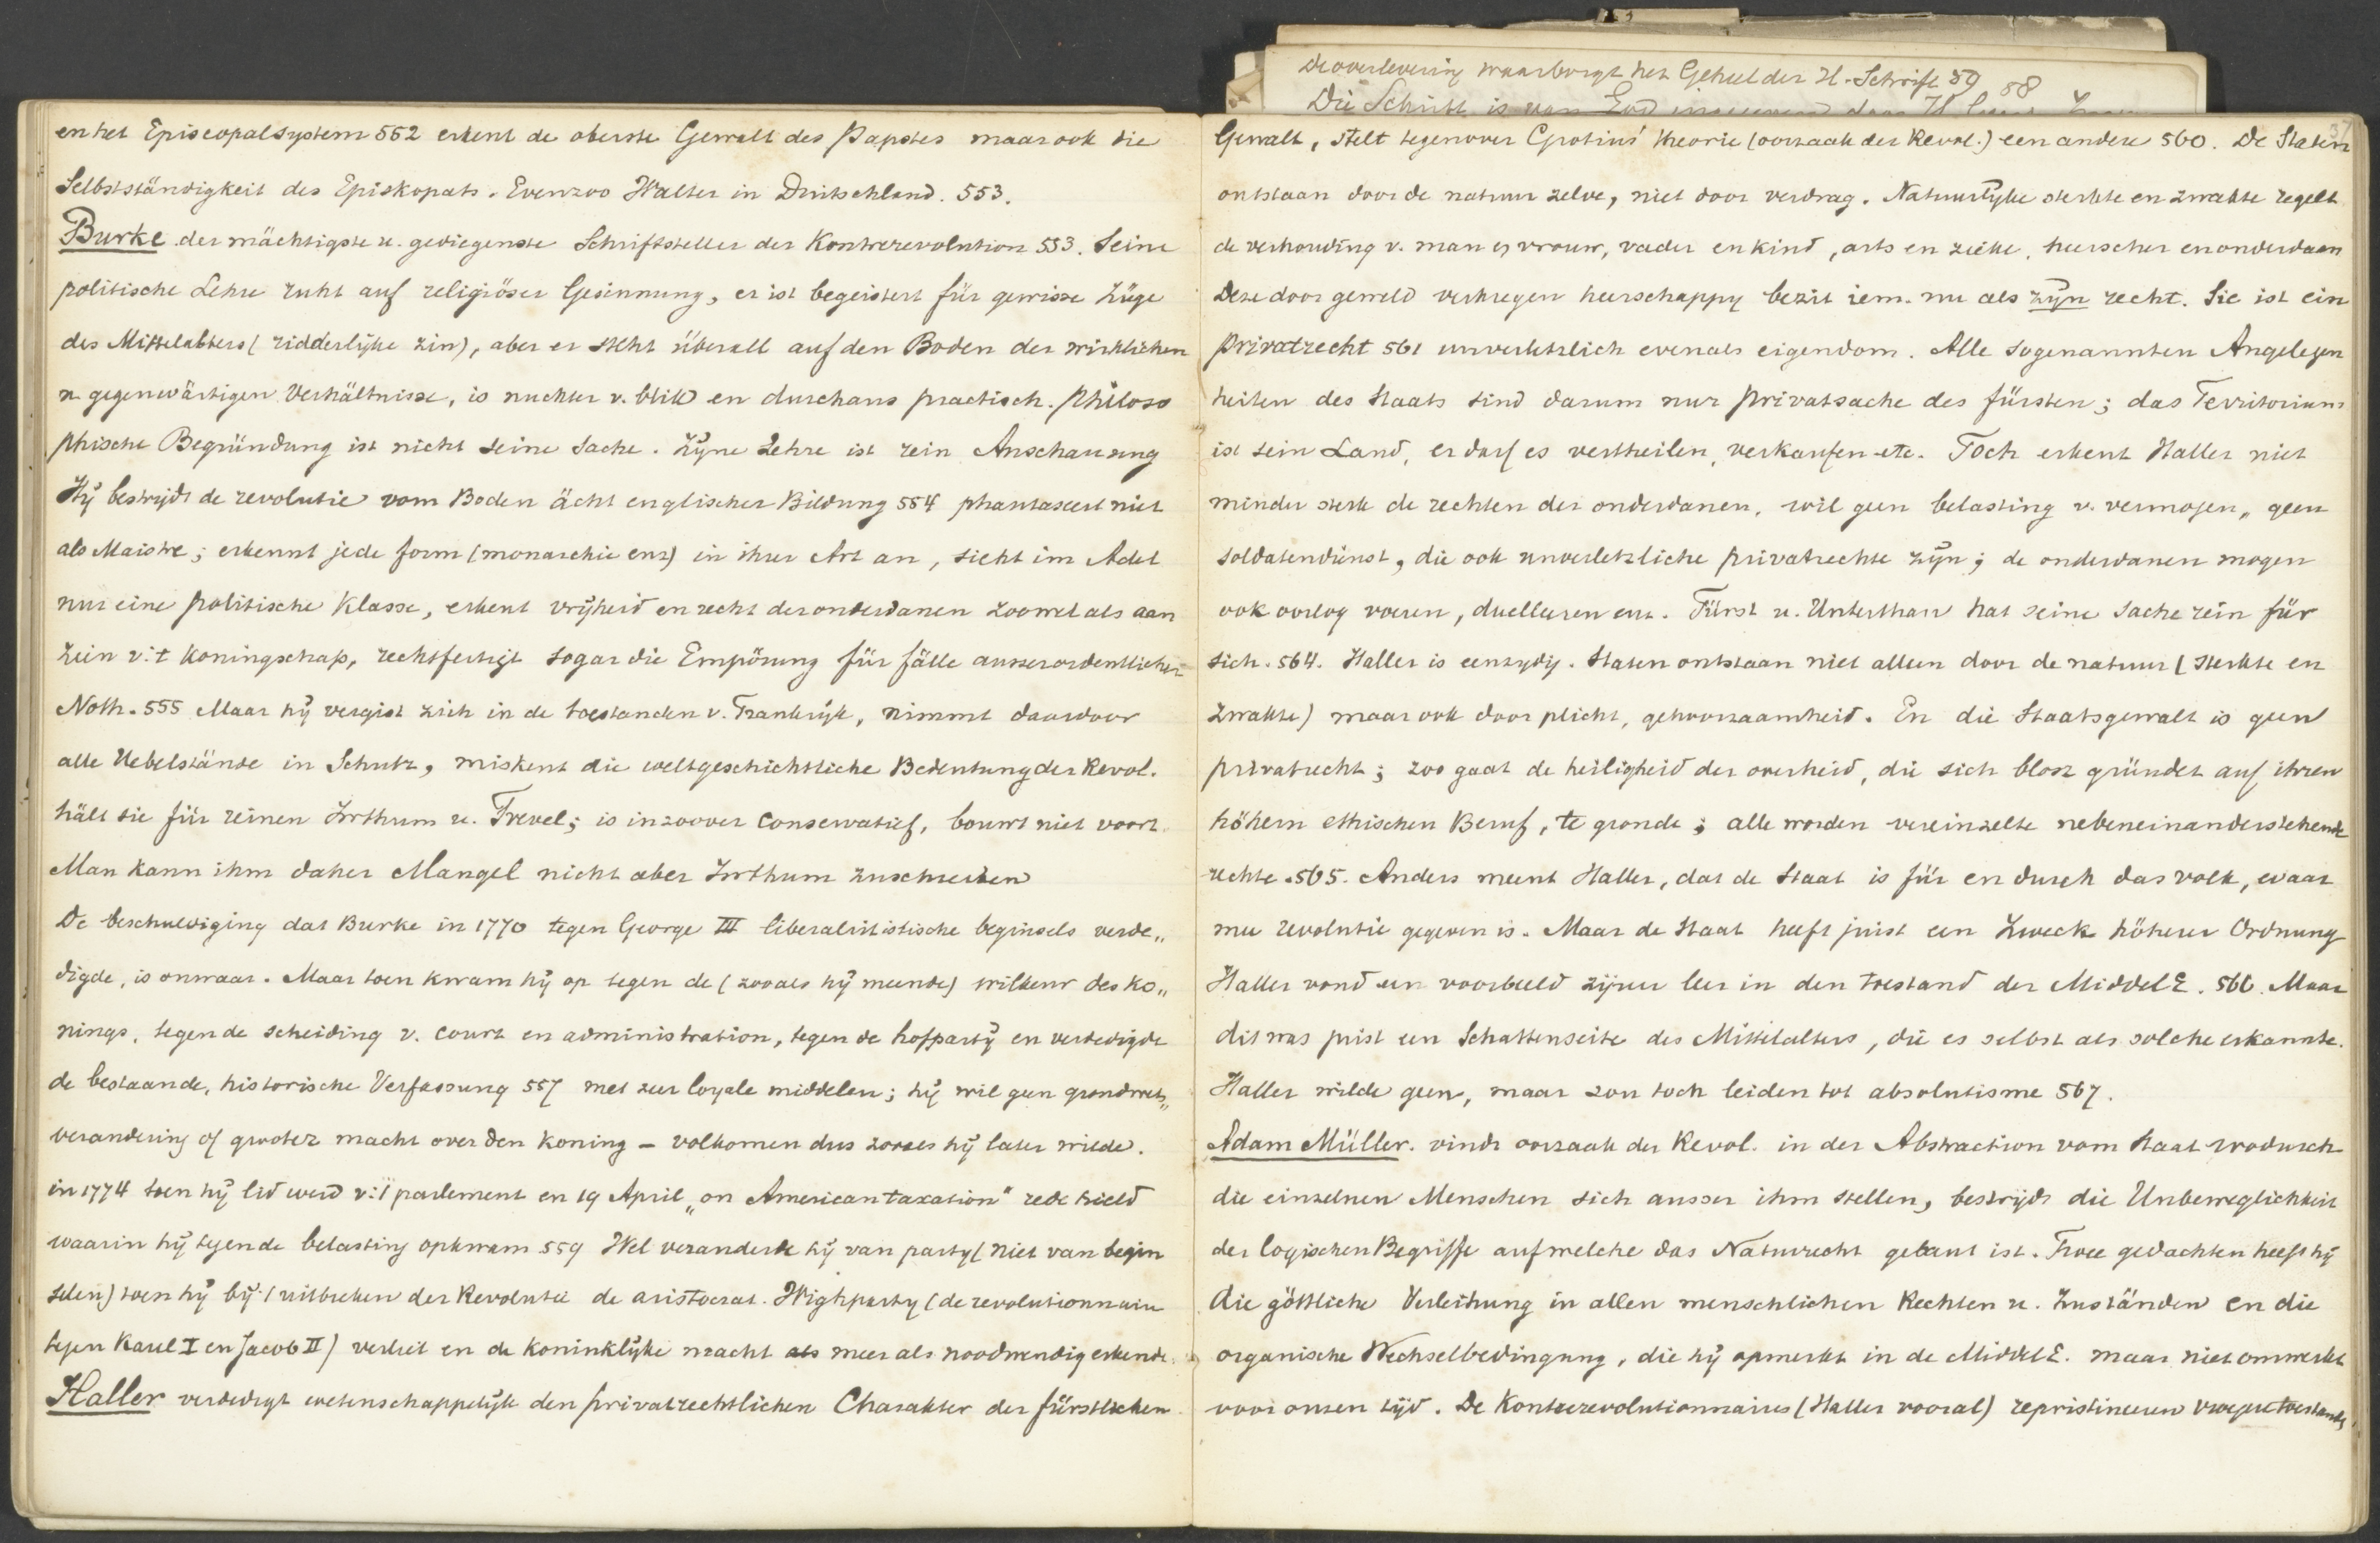 en het Episcopalsystem 552 erkent de oberste Gewalt des Papstes maar ook die
Selbstständigkeit des Episkopats. Evenzoo Walter in Duitschland. 553.
Burke der mächtigste u. gediegenste Schriftsteller der Kontrerevolution 553. Seine
politische Lehre ruht auf religiöser Gesinnung, er ist begeistert für gewisse Züge
des Mittelalters (ridderlijke zin), aber er steht überall auf den Boden der wirklichen
u. gegenwärtigen Verhältnisse, is nuchter v. blik en durchaus practisch. Philoso
phische Begründung ist nicht seine Sache. Zijne Lehre ist rein Anschauung
Hij bestrijdt de revolutie vom Boden ächt englischer Bildung 554 phantaseert niet
als Maistre; erkennt jede form (monarchie enz) in ihrer Art an, sieht im Adel
nur eine politische Klasse, erkent vrijheid en recht der onderdanen zoowel als aan
zien v. 't koningschap, rechtfertigt sogar die Empörung für fälle ausserordentlicher
Noth. 555 Maar hij vergist zich in de toestanden v. Frankrijk, nimmt daardoor
alle Uebelstände in Schutz, miskent die weltgeschichtliche Bedeutung der Revol.
hält sie für reinen Irrthum u. Frevel; is inzoover conservatief, bouwt niet voort.
Man kann ihm daher Mangel nicht aber Irrthum zuschreiben
De beschuldiging dat Burke in 1770 tegen George III liberalistische beginsels verde„
digde, is onwaar. Maar toen kwam hij op tegen de (zooals hij meende) wilkeur des ko„
nings, tegen de scheiding v. court en administration, tegen de hofpartij en verdedigde
de bestaande, historische Verfassung 557 met zeer loyale middelen; hij wil geen grondwets„
verandering of grooter macht over den koning - volkomen dus zooals hij later wilde.
in 1774 toen hij lid werd v. 't parlement en 19 April „on American taxation" rede hield
waarin hij tegen de belasting opkwam 559 Wel veranderde hij van partij (niet van begin
selen) toen hij bij 't uitbreken der Revolutie de aristocrat. Whigparty (de revolutionnaire
tegen Karel I en Jacob II) verliet en de koninklijke macht als meer als noodwendig erkende.
Haller verdedigt wetenschappelijk den privatrechtlichen Charakter der fürstlichen
De overlevering waarborgt het Geheel der H. Schrift 59
58
37
Gewalt, stelt tegenover Grotius' theorie (oorzaak der Revol.) een andere 560. De Staten
ontstaan door de natuur zelve, niet door verdrag. Natuurlijke sterkte en zwakte regelt
de verhouding v. man en vrouw, vader en kind, arts en zieke, heerscher en onderdaan
Deze door geweld verkregen heerschappij bezit iem. nu als zijn recht. Sie ist ein
Privatrecht 561 unverletzlich evenals eigendom. Alle sogenannten Angelegen
heiten des Staats sind darum nur Privatsache des fürsten; das Territorium
ist sein Land, er darf es vertheilen, verkaufen etc. Toch erkent Haller niet
minder sterk de rechten der onderdanen, wil geen belasting v. vermogen, geen
soldatendienst, die ook unverletzliche privatrechte zijn; de onderdanen mogen
ook oorlog voeren, duelleeren enz. Fürst u. Unterthan hat seine Sache rein für
sich. 564. Haller is eenzijdig. Staten ontstaan niet alleen door de natuur (sterkte en
zwakte) maar ook door plicht, gehoorzaamheid. En die Staatsgewalt is geen
privatrecht; zoo gaat de heiligheid der overheid, die sich blosz gründet auf ihren
höhern ethischen Beruf, te gronde; alle worden vereinzelte nebeneinanderstehende
rechte. 565. Anders meent Haller, dat de Staat is für en durch das volk, waar
mee revolutie gegeven is. Maar de Staat heeft juist een Zweck höherer Ordnung
Haller vond een voorbeeld zijner leer in den toestand der MiddelE. 566. Maar
dit was juist een Schattenseite des Mittelalters, die es selbst als solche erkannte.
Haller wilde geen, maar zou toch leiden tot absolutisme 567.
Adam Müller. vindt oorzaak der Revol. in der Abstraction vom Staat wodurch
die einzelnen Menschen sich ausser ihm stellen, bestrijdt die Unbeweglichkeit
der logischen Begriffe auf welche das Naturrecht gebaut ist. Twee gedachten heeft hij
die göttliche Verleihung in allen menschlichen Rechten u. Zuständen en die
organische Wechselbedingung, die hij opmerkt in de MiddelE. maar niet omwerkt
voor onzen tijd. De Kontrerevolutionnaires (Haller vooral) repristineeren vroegere toestande